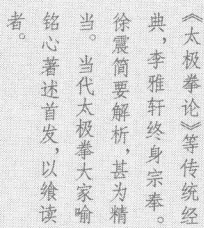 《太极拳论》等传统经
典，李雅轩终身宗奉。
徐震简要解析，甚为精
当。当代太极拳大家喻
铭心著述首发，以飨读
者。